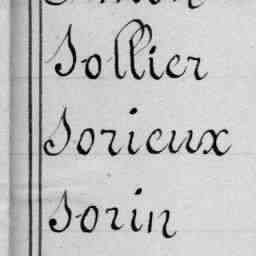 Sollier
Sorieux
Sorin